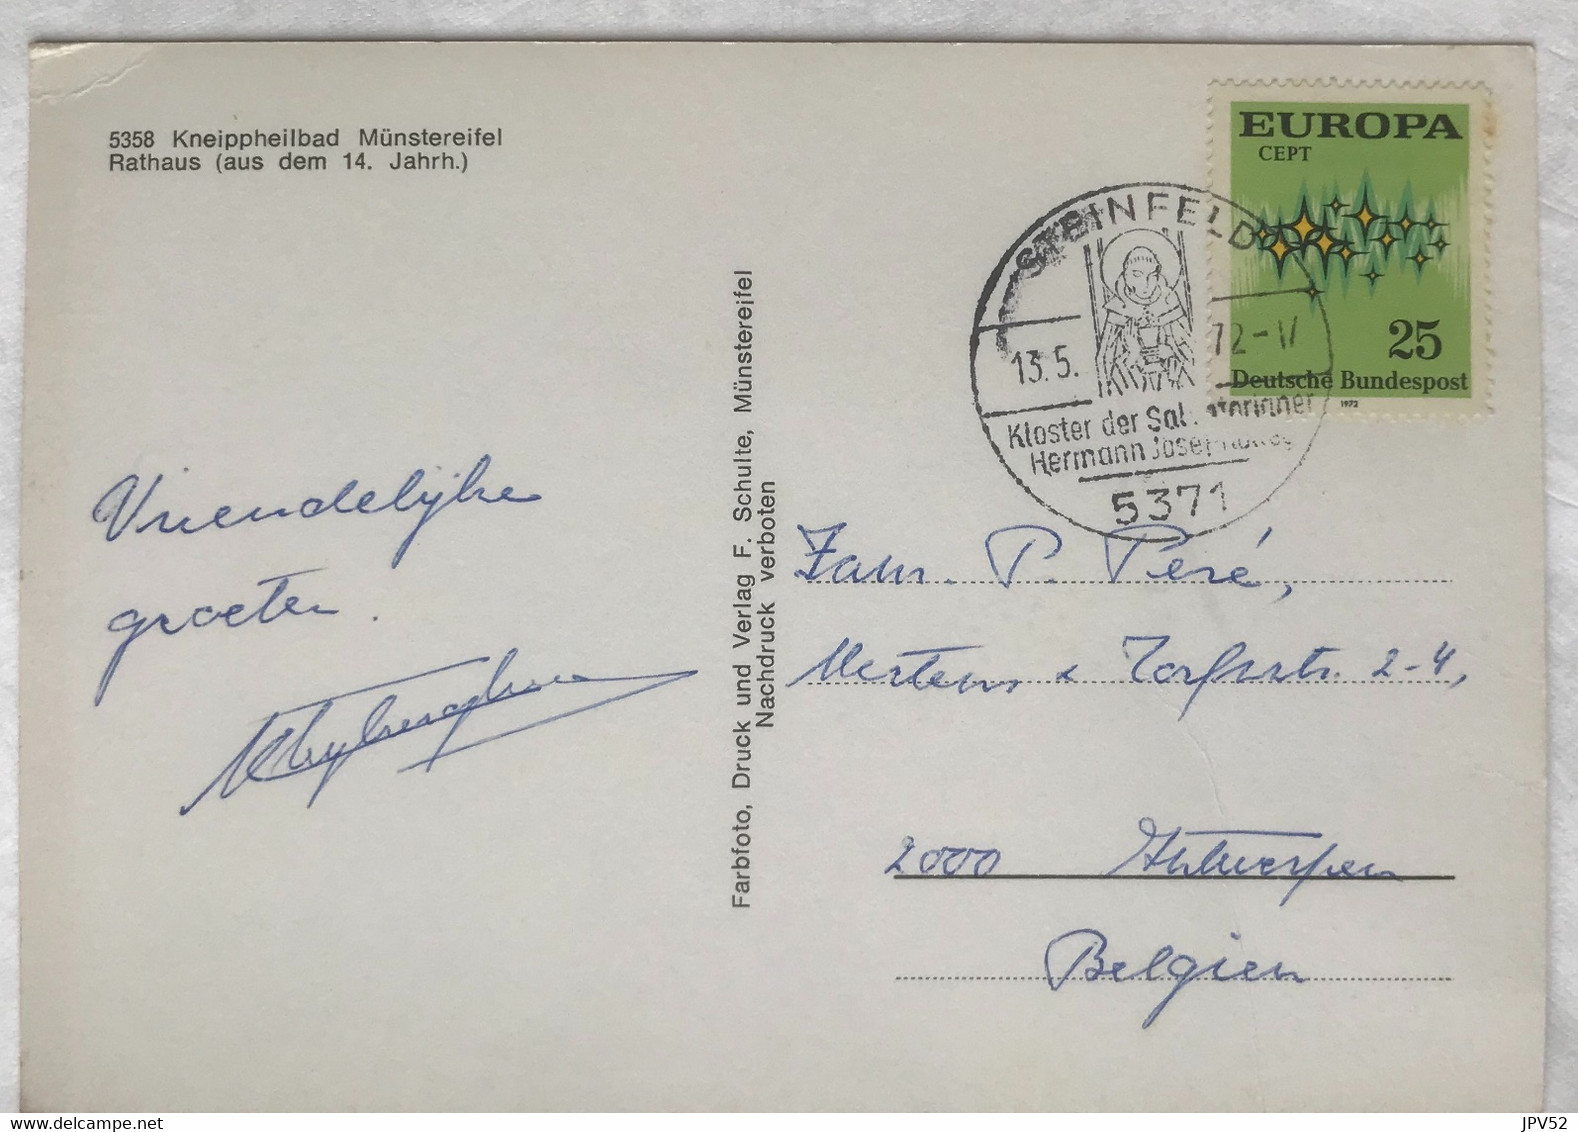 5358 Kneippheilbad Münstereifel
Rathaus (aus dem 14. Jahrh.)
EUROPA
CEPT
25
Deutsche Bundespost
1972
STEINFELD
13.5. 72-
Kloster der Salvatorianer
Hermann Josef
5371
Vriendelijke
groeten.
Farbfoto, Druck und Verlag F. Schulte, Münstereifel
Nachdruck verboten
Fam. P. Peré,
Mertens & Torfsstr. 2-4,
2000 Antwerpen
Belgien
delcampe.net
JPV52